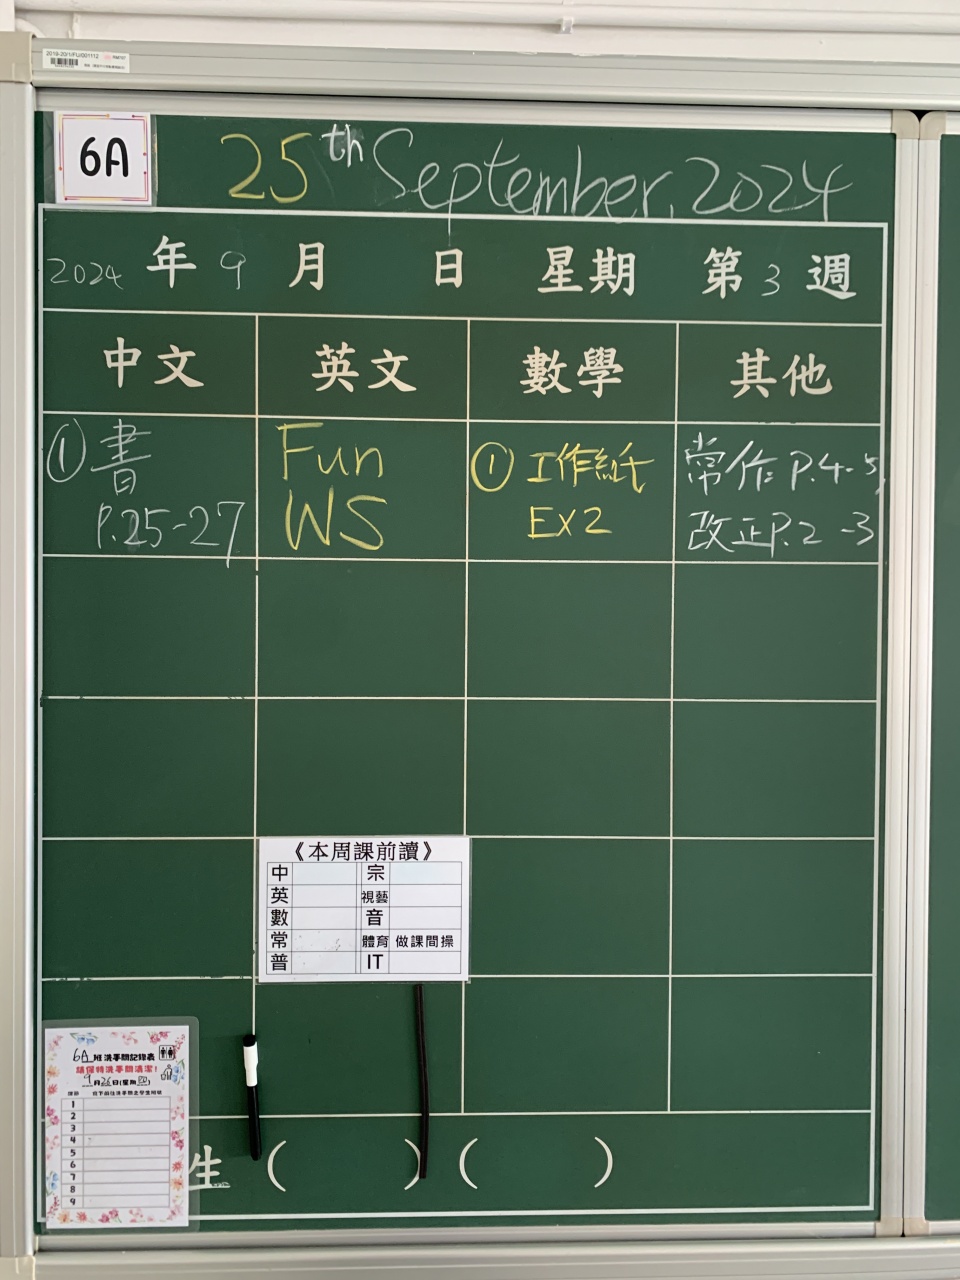 2019-20/1/FU/001112
6A
25th September, 2024
2024 年 9 月 日 星期 第 3 週
中文 英文 數學 其他
① 書
P.25-27
Fun
WS
① 工作紙
EX2
常作 P.4-5,
改正P.2-3
《本周課前讀》
中 宗
英 視藝
數 音
常 體育 做課間操
普 IT
6A 班洗手間記錄表
請保持洗手間清潔!
9月26日(星期四)
1
2
3
4
5
6
7
8
9
生 ( ) ( )